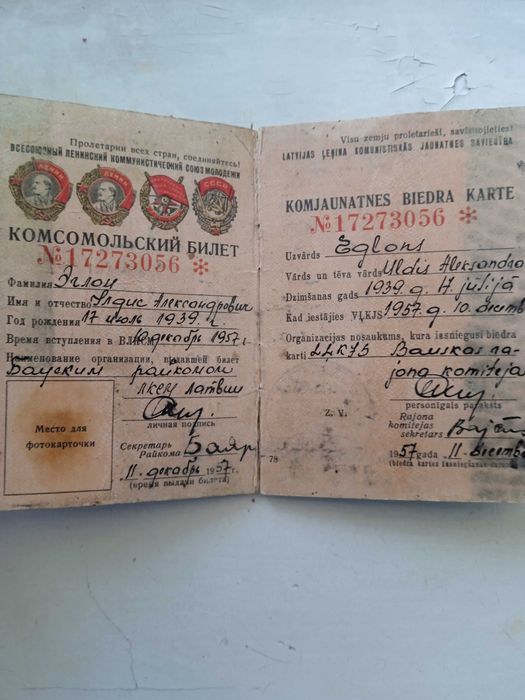 Пролетарии всех стран, соединяйтесь!
ВСЕСОЮЗНЫЙ ЛЕНИНСКИЙ КОММУНИСТИЧЕСКИЙ СОЮЗ МОЛОДЕЖИ
КОМСОМОЛЬСКИЙ БИЛЕТ
№17273056 *
Фамилия Эглон
Имя и отчество Улдис Александрович
Год рождения 17 июль 1939. г
Время вступления в ВЛКСМ 10 декабрь 1957 г.
Наименование организации, выдавшей билет
Бауским райкомом
ЛКСМ Латвии
личная подпись
Место для
фотокарточки
Секретарь
Райкома
11. декабрь 1957 г.
(время выдачи билета)
Visu zemju proletārieši, savienojieties!
LATVIJAS ĻEŅINA KOMUNISTISKĀS JAUNATNES SAVIENĪBA
KOMJAUNATNES BIEDRA KARTE
№17273056 *
Uzvārds Eglons
Vārds un tēva vārds Uldis Aleksandra
Dzimšanas gads 1939. g. 17. jūlijā
Kad iestājies VĻKJS 1957. g. 10. decemb
Organizācijas nosaukums, kura izsniegusi biedra
karti LĻKJS Bauskas ra-
jona komiteja
personīgais paraksts
Z. V.
Rajona
komitejas
sekretārs
78
1957 gada 11. decemb
(biedra kartes izsniegšanas